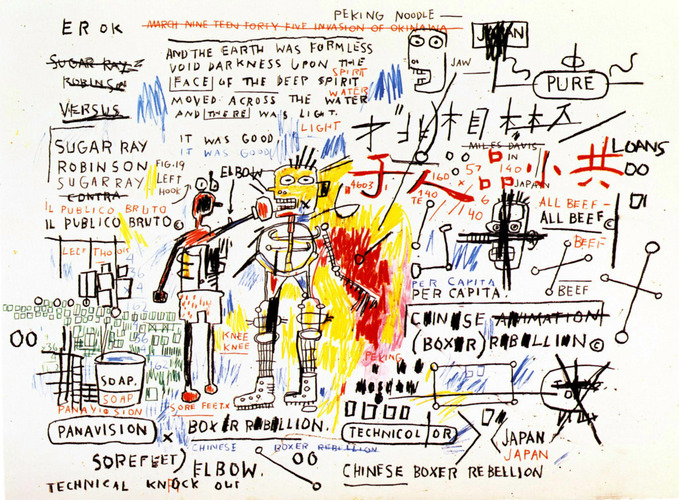 PEKING NOODLE
ER OK
MARCH NINE TEEN FORTY FIVE INVASION OF OKINAWA
JAPAN
AND THE EARTH WAS FORMLESS
VOID DARKNESS UPON THE
FACE OF THE DEEP SPIRIT
MOVED ACROSS THE WATER
AND THERE WAS LIGHT.
SPIRIT
WATER
LIGHT
JAW
PURE
SUGAR RAY
ROBINSON
VERSUS
IT WAS GOOD
IT WAS GOOD
SUGAR RAY
ROBINSON
SUGAR RAY
CONTRA
IL PUBLICO BRUTO
IL PUBLICO BRUTO©
FIG.19
LEFT
HOOK
ELBOW
MILES DAVIS
IN
JAPAN
LOANS
00
人 品 小 共
4603
160
57
140
140
6
40
TE
ALL BEEF -
ALL BEEF©
BEEF
BEEF
PER CAPITA
PER CAPITA.
CHINESE ANIMATION
(BOXER) REBELLION©
00
KNEE
KNEE
PEKING
SOAP.
SOAP
PANAVISION
SORE FEET X
PANAVISION
X
BOXER REBELLION.
TECHNICOLOR
JAPAN
JAPAN
CHINESE BOXER REBELLION
SOREFEET)
ELBOW.
00
CHINESE BOXER REBELLION
TECHNICAL KNOCK OUT